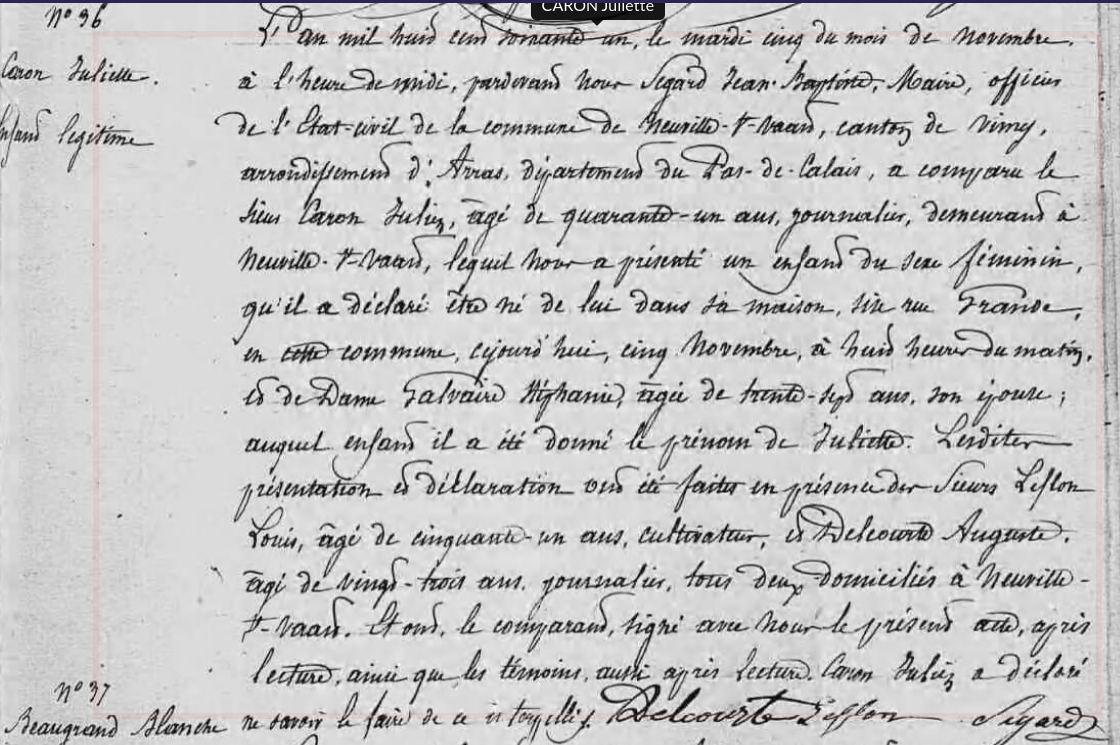 CARON Juliette
N° 36
Caron Juliette.
Enfant légitime
L'an mil huit cent soixante un, le mardi cinq du mois de Novembre.
à l'heure de midi, pardevant nous Segard Jean-Baptiste, Maire, officier
de l'Etat-civil de la commune de Neuville-St-Vaast, canton de Vimy,
arrondissement d'Arras, département du Pas-de-Calais, a comparu le
sieur Caron Julien, âgé de quarante-un ans, journalier, demeurant à
Neuville-St-Vaast, lequel nous a présenté un enfant du sexe féminin,
qu'il a déclaré être né de lui dans sa maison, sise rue Grande,
en cette commune, cejourd'hui, cinq Novembre, à huit heures du matin,
et de Dame Galvaire Stéphanie, âgée de trente-sept ans, son épouse;
auquel enfant il a été donné le prénom de Juliette. Lesdites
présentation et déclaration ont été faites en présence des Sieurs Leflon
Louis, âgé de cinquante-un ans, cultivateur, et Delcourte Auguste,
âgé de vingt-trois ans, journalier, tous deux domiciliés à Neuville-
St-Vaast. Et ont, le comparant, signé avec nous le présent acte, après
lecture, ainsi que les témoins, aussi après lecture. Caron Julien a déclaré
ne savoir le faire de ce interpellé. Delcourte Leflon Segard
N° 37
Beaugrand Blanche